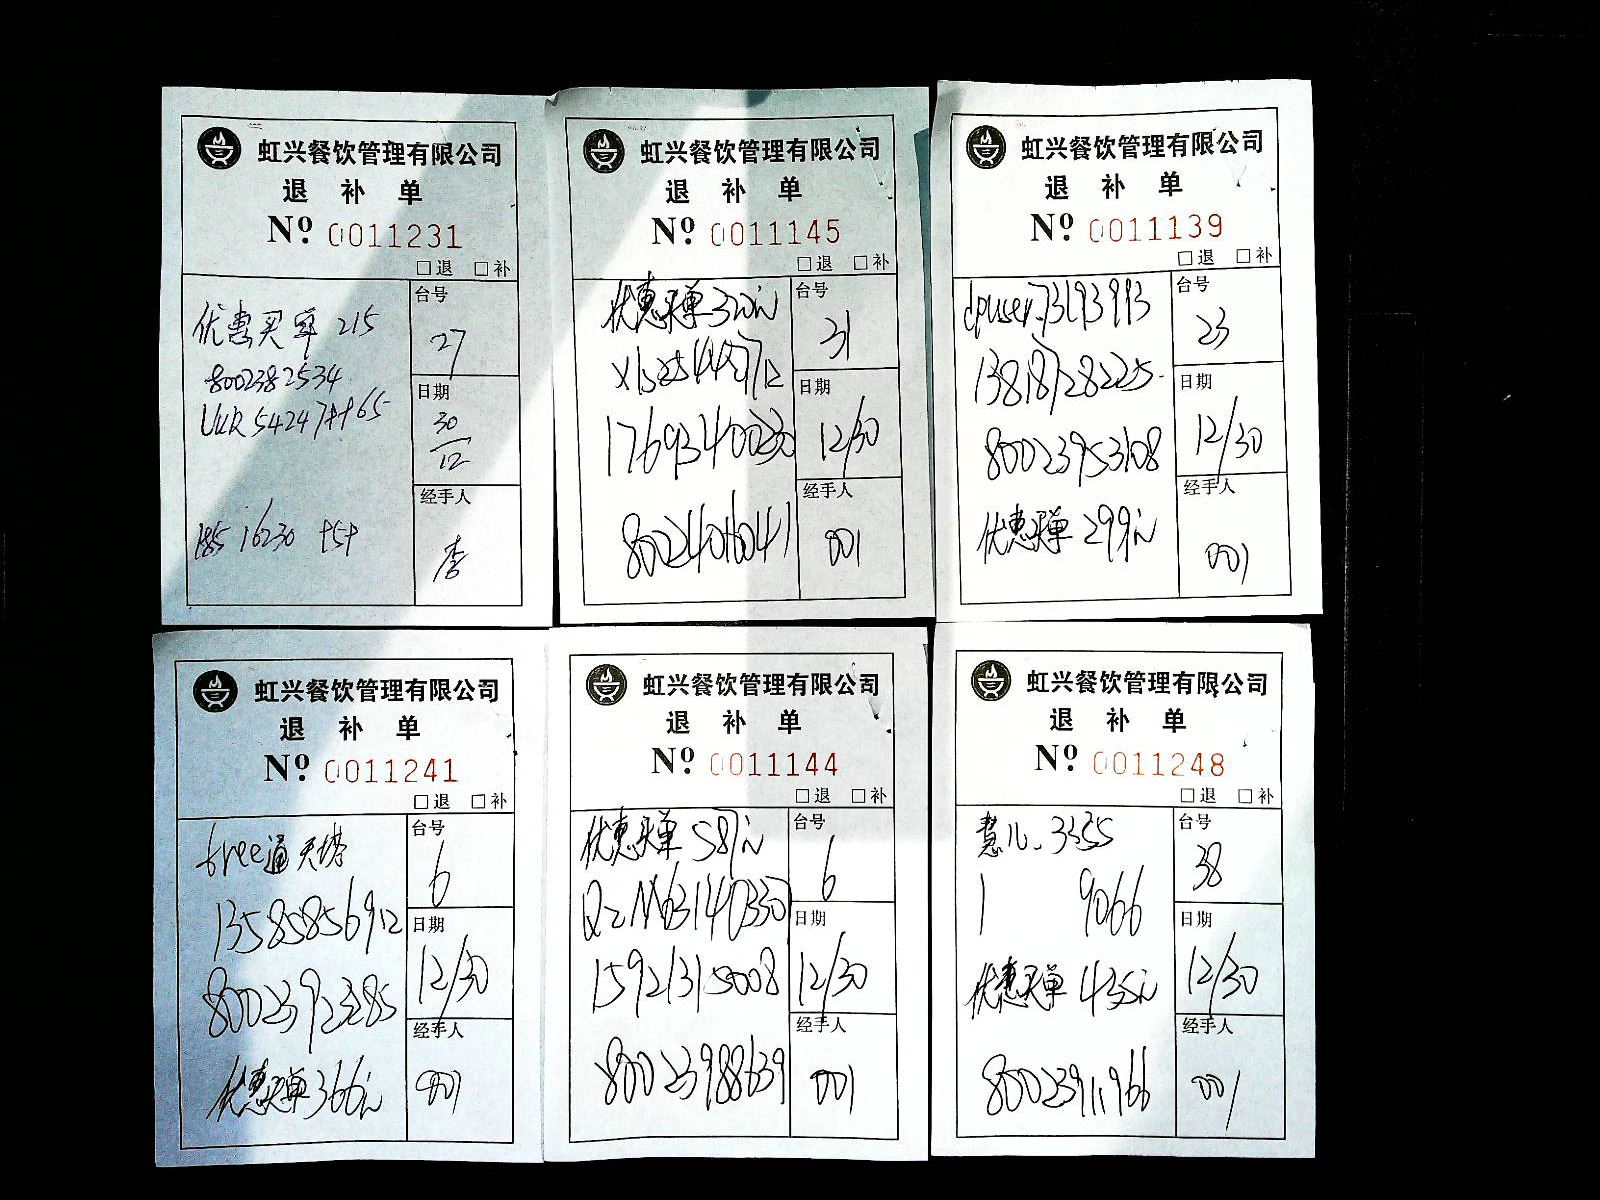 虹兴餐饮管理有限公司
退 补 单
Nº 0011231
□退 □补
优惠买单 215
8002382534
台号
27
日期
30/12
经手人
李
虹兴餐饮管理有限公司
退 补 单
Nº 0011145
□退 □补
优惠买单320元
17693400230
80024016041
台号
31
日期
12/30
经手人
001
虹兴餐饮管理有限公司
退 补 单
Nº 0011139
□退 □补
dpuser-73193993
13818728225
80023953108
优惠买单 299元
台号
23
日期
12/30
经手人
001
虹兴餐饮管理有限公司
退 补 单
Nº 0011241
□退 □补
free通天塔
13585856912
8002392385
优惠买单366元
台号
6
日期
12/30
经手人
001
虹兴餐饮管理有限公司
退 补 单
Nº 0011144
□退 □补
优惠买单 587元
15921315008
80023988639
台号
6
日期
12/30
经手人
001
虹兴餐饮管理有限公司
退 补 单
Nº 0011248
□退 □补
慧儿.3355
1 9066
优惠买单 435元
8002391966
台号
38
日期
12/30
经手人
001